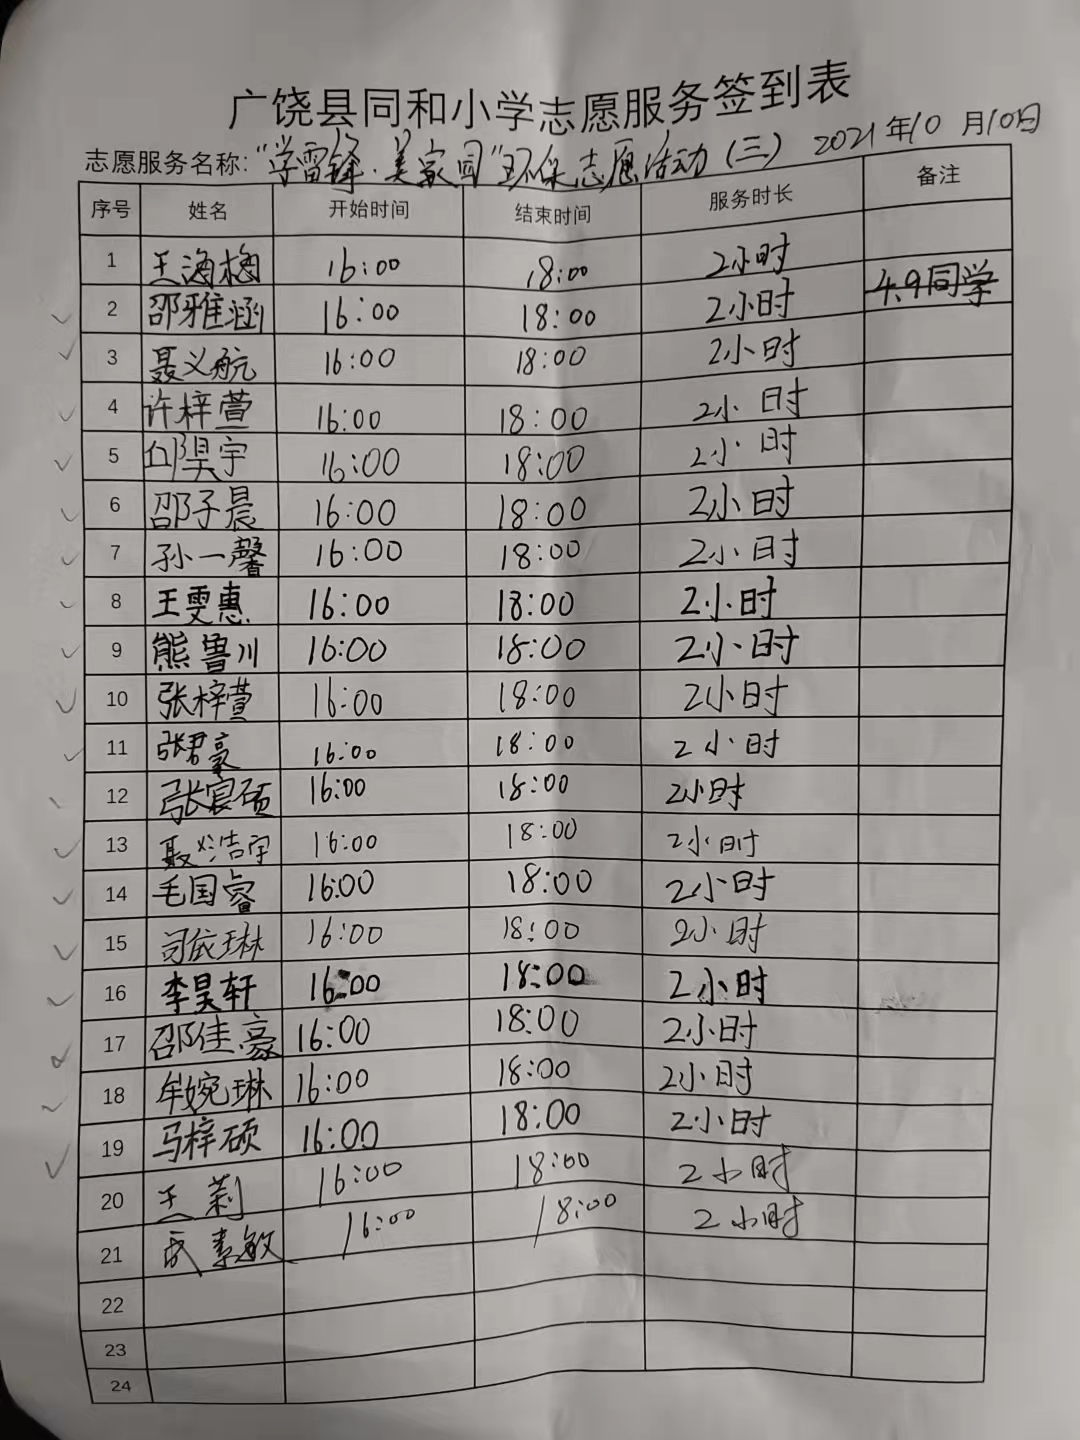 广饶县同和小学志愿服务签到表
志愿服务名称：“学雷锋·美家园”环保志愿活动（三） 2021年10月10日
序号 姓名 开始时间 结束时间 服务时长 备注
1 王海梅 16:00 18:00 2小时
2 邵雅涵 16:00 18:00 2小时 4.9同学
3 聂义航 16:00 18:00 2小时
4 许梓萱 16:00 18:00 2小时
5 邱昊宇 16:00 18:00 2小时
6 邵子晨 16:00 18:00 2小时
7 孙一馨 16:00 18:00 2小时
8 王雯惠 16:00 18:00 2小时
9 熊鲁川 16:00 18:00 2小时
10 张梓萱 16:00 18:00 2小时
11 张君豪 16:00 18:00 2小时
12 张宸硕 16:00 18:00 2小时
13 聂浩宇 16:00 18:00 2小时
14 毛国睿 16:00 18:00 2小时
15 司依琳 16:00 18:00 2小时
16 李昊轩 16:00 18:00 2小时
17 邵佳豪 16:00 18:00 2小时
18 牟婉琳 16:00 18:00 2小时
19 马梓硕 16:00 18:00 2小时
20 王莉 16:00 18:00 2小时
21 素敏 16:00 18:00 2小时
22
23
24